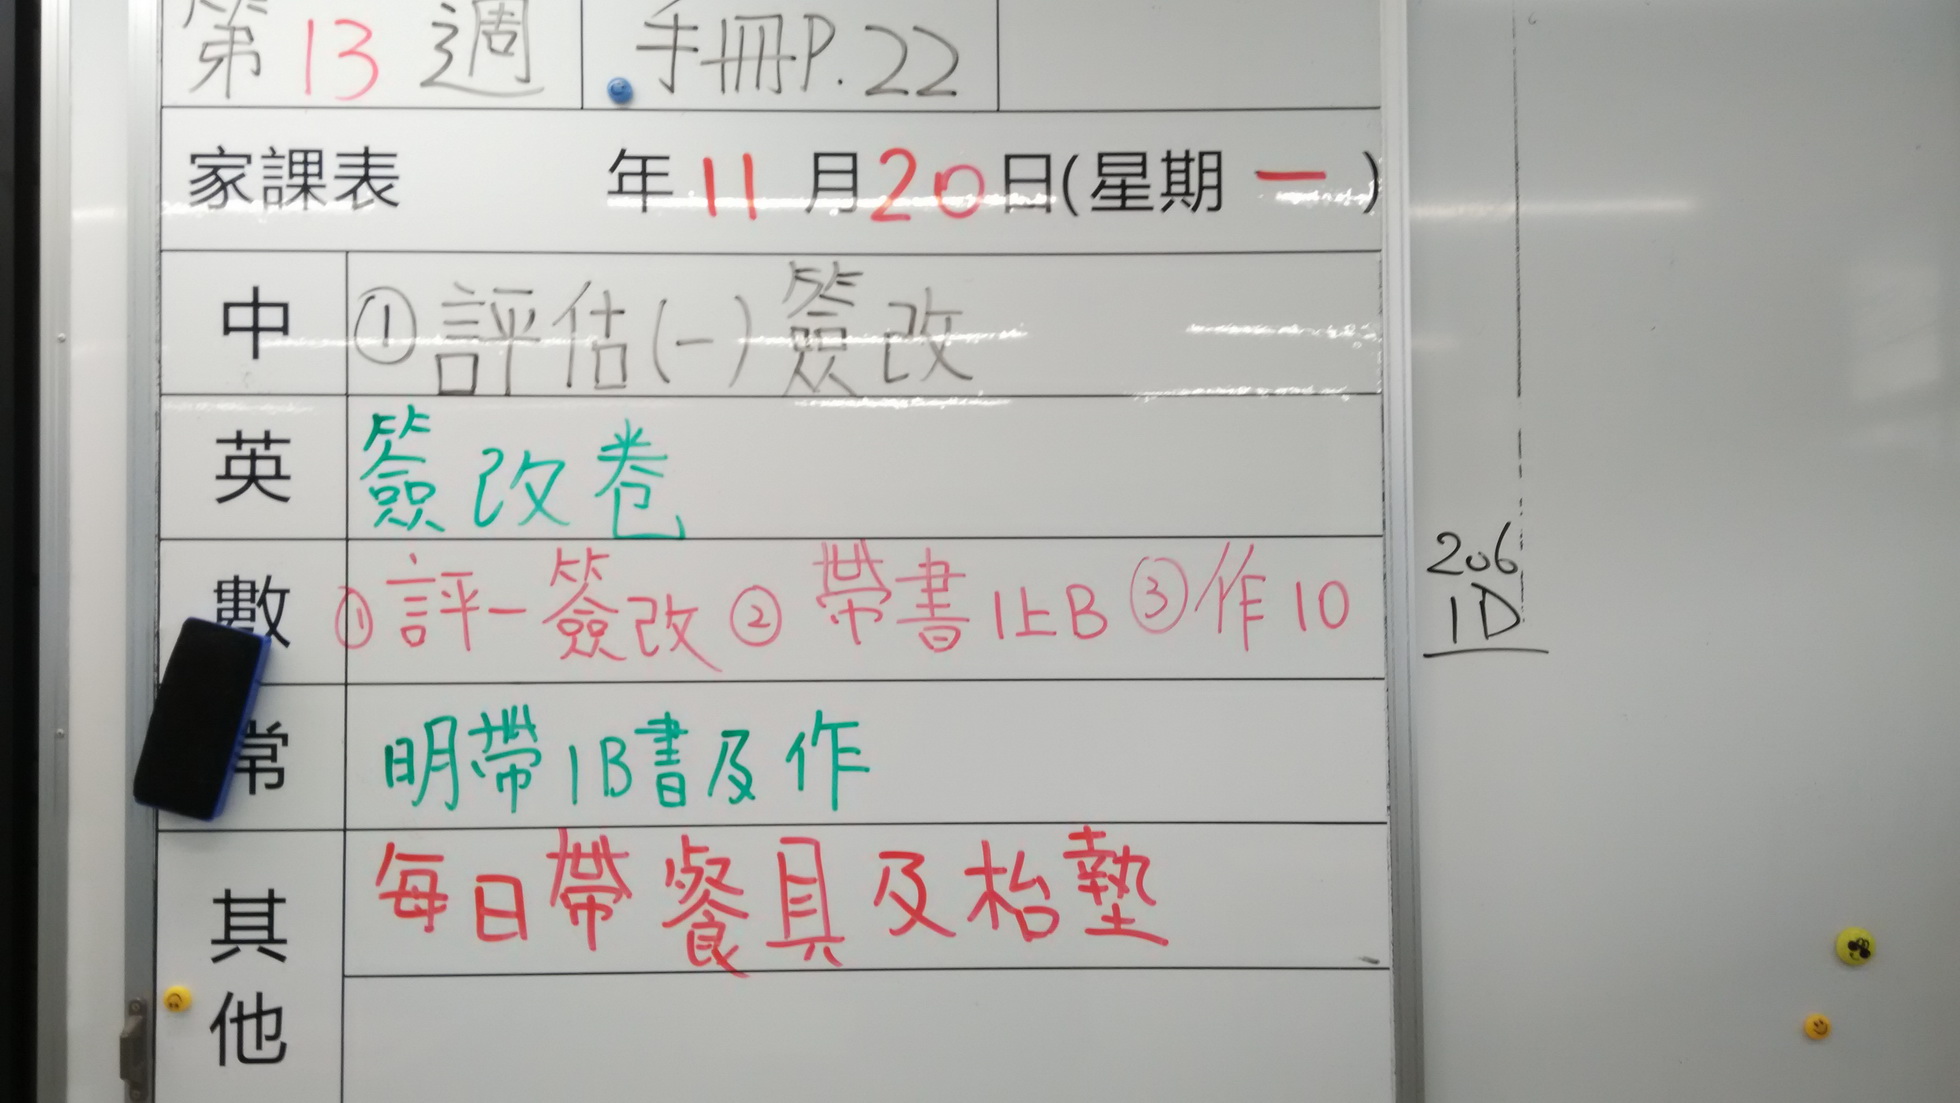 第13週 手冊P.22
家課表 年11月20日(星期一)
中 ①評估(一)簽改
英 簽改卷
數 ①評一簽改②帶書1上B③作10
常 明帶1B書及作
其他 每日帶餐具及枱墊
206
1D